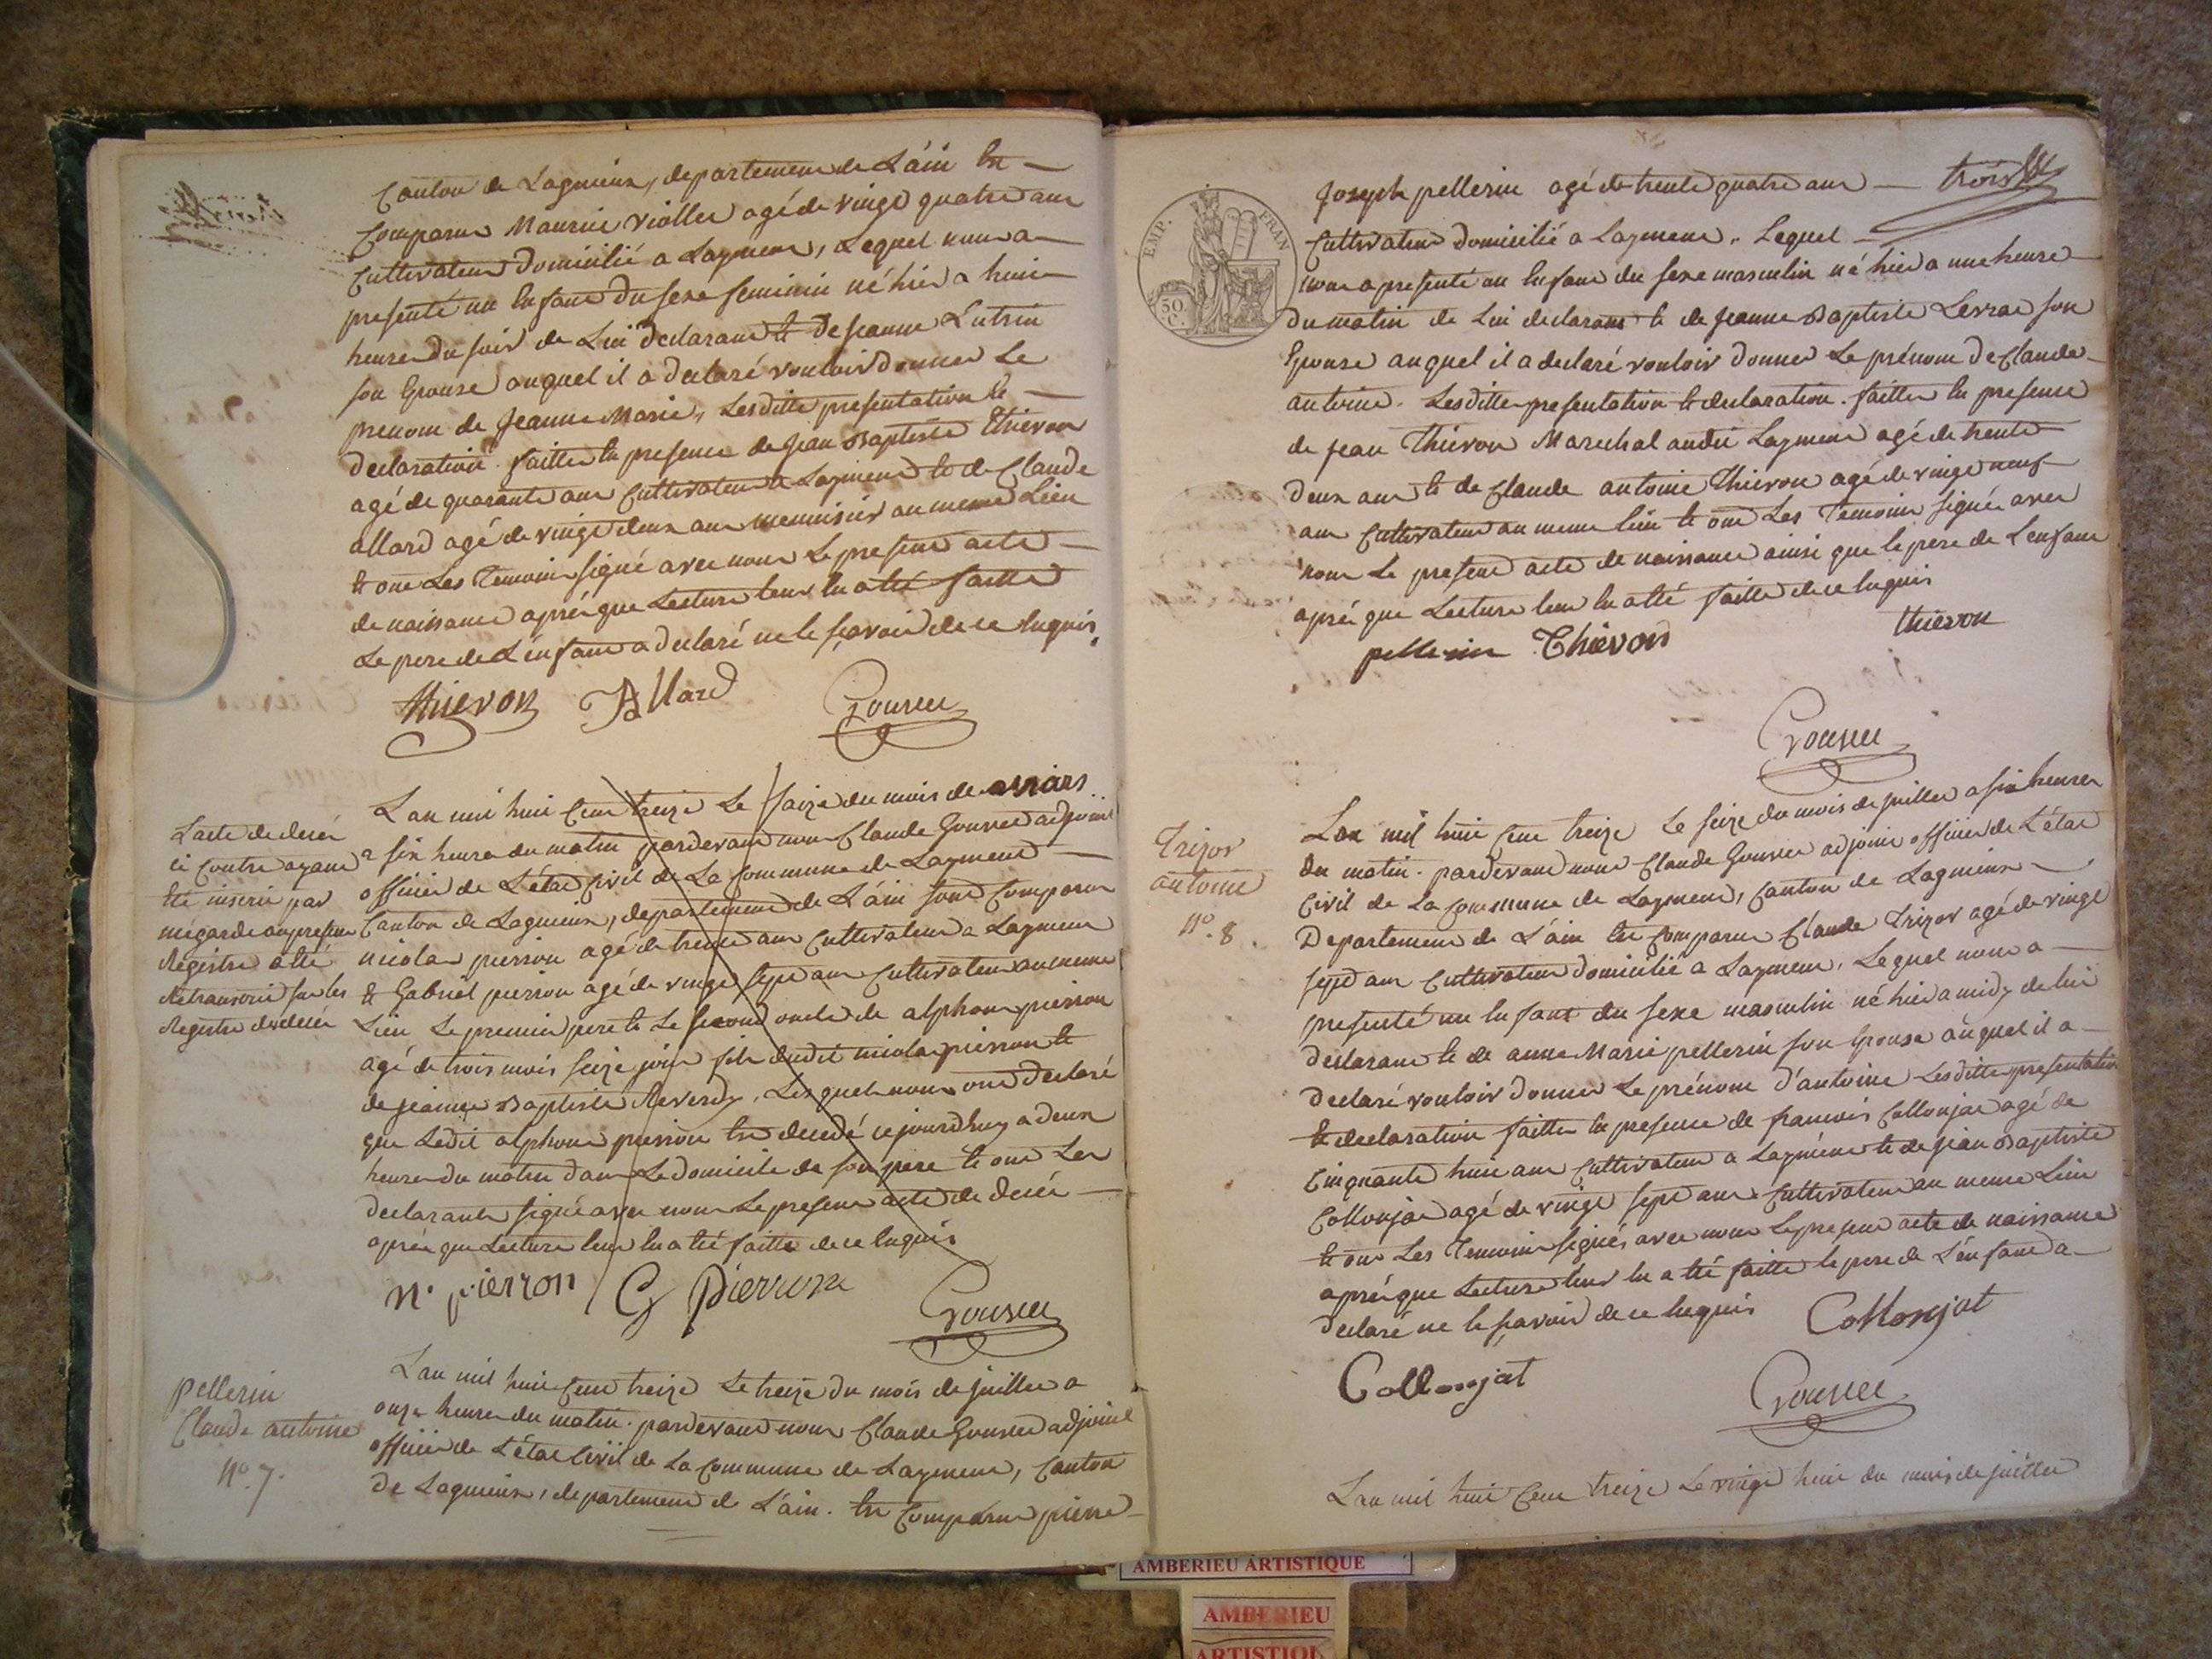 Canton de Lagnieux, departement de L'ain Est
Comparu Maurice Viollet agé de vingt quatre ans
Cultivateur Domicilié a Laymens, Lequel nous a
presenté un Enfant du sexe feminin né hier a huit
heures du soir de Lui declarant Et De Jeanne Lutrin
son Epouse auquel il a declaré vouloir donner Le
prenom de Jeanne Marie, Lesdittes presentation Et
declaration faittes En presence de jean Baptiste thievon
agé de quarante ans Cultivateur a Layment Et de Claude
allard agé de vingt deux ans menuisier au meme Lieu
Et ont Les Temoins signé avec nous Le present acte
de naissance aprés que Lecture leur En a Eté faitte
Le pere de L'enfant a declaré ne le sçavoir de ce Enquis.
thievon Allard Gouvee
L'acte de decés
ci Contre ayant
Eté inseré par
megarde au present
Registre a Eté
Retranscrit sur les
Registre des decés
L'an mil huit Cent treize Le saize du mois de mars
a six heures du matin pardevant nous Claude Gouvee adjoint
officier de L'état Civil de La Commune de Layment
Canton de Lagnieux, departement de L'ain sont Comparus
nicolas pierron agé de trente ans Cultivateur a Laymens
Et Gabriel pierron agé de vingt sept ans Cultivateur au meme
Lieu Le premier pere Et Le second oncle de alphons pierron
agé de trois mois seize jours fils dudit nicolas pierron Et
de jeanne Baptiste Reverdy, Lesquels nous ont declaré
que Ledit alphons pierron Est decedé cejourdhuy a deux
heures du matin dans Le domicile de son pere Et ont Les
declarants signé avec nous Le present acte de Decés
aprés que Lecture leur En a Eté faitte de ce Enquis
N. pierron G Pierron
Gouvee
Pellerin
Claude antoine
N.° 7.
L'an mil huit Cent treize Le treize du mois de juillet a
onze heures du matin. pardevant nous Claude Gouvee adjoint
officier de L'état Civil de La Commune de Laymens, Canton
de Lagnieux, departement de L'ain. Est Comparu pierre
trois
EMP. FRAN
50 C.
Joseph pellerin agé de trente quatre ans
Cultivateur domicilié a Laymens, Lequel
nous a presenté un Enfant du sexe masculin né hier a une heure
du matin de Lui declarant Et de Jeanne Baptiste Levrat son
Epouse auquel il a declaré vouloir donner Le prénom de Claude
antoine. Lesdittes presentation Et declaration. faittes En presence
de jean Thievon Marechal audit Laymens agé de trente
deux ans Et de Claude antoine Thievon agé de vingt neuf
ans Cultivateur au meme lieu Et ont Les Temoins signés avec
nous Le present acte de naissance ainsi que le pere de L'enfant
aprés que Lecture leur En a Eté faitte de ce Enquis
pellerin Thievon thievon
Gouvee
Trizor
antoine
N.° 8.
L'an mil huit Cent treize Le seize du mois de juillet a six heures
du matin. pardevant nous Claude Gouvee adjoint officier de L'état
Civil de La Commune de Laymens, Canton de Lagnieux
Departement de L'ain Est Comparu Claude Trizor agé de vingt
sept ans Cultivateur domicilié a Laymens, Lequel nous a
presenté un Enfant du sexe masculin né hier a midy de lui
declarant Et de anne Marie pellerin son Epouse auquel il a
declaré vouloir donner Le prénom d'antoine Lesdittes presentation
Et declaration faittes En presence de francois Collonjat agé de
Cinquante huit ans Cultivateur a Laymens Et de jean Baptiste
Collonjat agé de vingt sept ans Cultivateur au meme Lieu
Et ont Les Temoins signés avec nous Le present acte de naissance
aprés que Lecture leur En a Eté faitte le pere de L'enfant a
declaré ne le sçavoir de ce Enquis Collonjat
Collonjat
Gouvee
L'an mil huit Cent treize Le vingt huit du mois de juillet
AMBERIEU ARTISTIQUE
AMBERIEU
ARTISTIQU